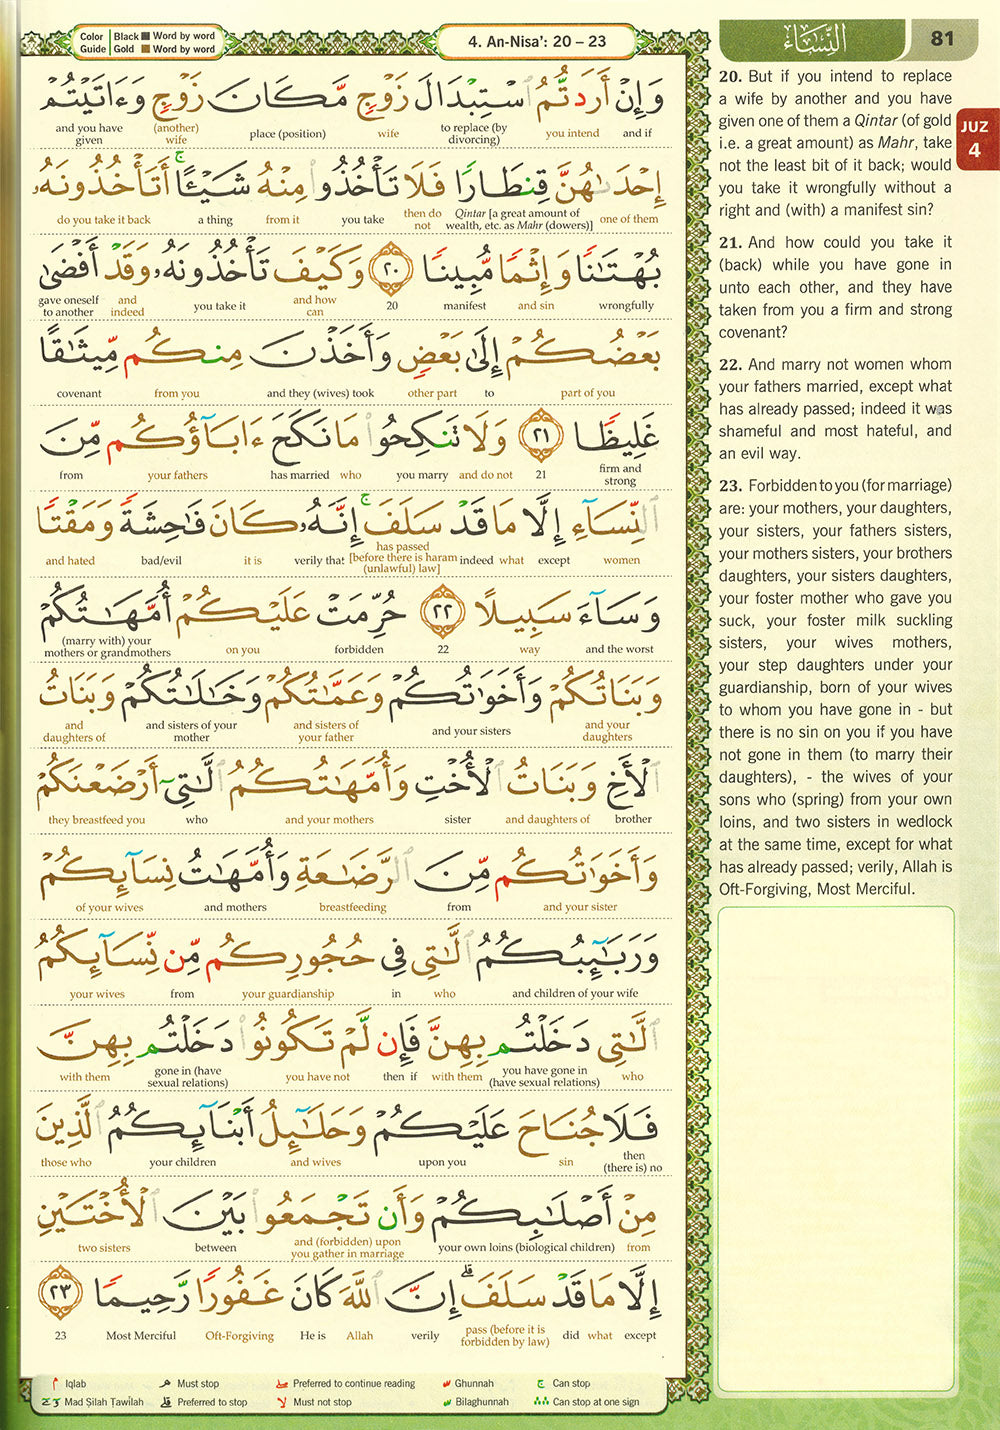 Color Guide | Black ■ Word by word Gold ■ Word by word
4. An-Nisa’: 20 – 23
النِّسَاء
81
JUZ 4
وَإِنْ أَرَدتُّمُ ٱسْتِبْدَالَ زَوْجٍ مَّكَانَ زَوْجٍ وَءَاتَيْتُمْ
and if you intend to replace (by divorcing) wife place (position) (another) wife and you have given
إِحْدَىٰهُنَّ قِنطَارًا فَلَا تَأْخُذُوا۟ مِنْهُ شَيْـًٔا ۚ أَتَأْخُذُونَهُۥ
one of them Qintar [a great amount of wealth, etc. as Mahr (dowers)] then do not you take from it a thing do you take it back
بُهْتَـٰنًا وَإِثْمًا مُّبِينًا ٢٠ وَكَيْفَ تَأْخُذُونَهُۥ وَقَدْ أَفْضَىٰ
wrongfully and sin manifest 20 and how can you take it and indeed gave oneself to another
بَعْضُكُمْ إِلَىٰ بَعْضٍ وَأَخَذْنَ مِنكُم مِّيثَـٰقًا
part of you to other part and they (wives) took from you covenant
غَلِيظًا ٢١ وَلَا تَنكِحُوا۟ مَا نَكَحَ ءَابَآؤُكُم مِّنَ
firm and strong 21 and do not you marry who has married your fathers from
ٱلنِّسَآءِ إِلَّا مَا قَدْ سَلَفَ ۚ إِنَّهُۥ كَانَ فَـٰحِشَةً وَمَقْتًا
women except what indeed has passed [before there is haram (unlawful) law] verily that it is bad/evil and hated
وَسَآءَ سَبِيلًا ٢٢ حُرِّمَتْ عَلَيْكُمْ أُمَّهَـٰتُكُمْ
and the worst way 22 forbidden on you (marry with) your mothers or grandmothers
وَبَنَاتُكُمْ وَأَخَوَٰتُكُمْ وَعَمَّـٰتُكُمْ وَخَـٰلَـٰتُكُمْ وَبَنَاتُ
and your daughters and your sisters and sisters of your father and sisters of your mother and daughters of
ٱلْأَخِ وَبَنَاتُ ٱلْأُخْتِ وَأُمَّهَـٰتُكُمُ ٱلَّـٰتِىٓ أَرْضَعْنَكُمْ
brother and daughters of sister and your mothers who they breastfeed you
وَأَخَوَٰتُكُم مِّنَ ٱلرَّضَـٰعَةِ وَأُمَّهَـٰتُ نِسَآئِكُمْ
and your sister from breastfeeding and mothers of your wives
وَرَبَـٰٓئِبُكُمُ ٱلَّـٰتِى فِى حُجُورِكُم مِّن نِّسَآئِكُمُ
and children of your wife who in your guardianship from your wives
ٱلَّـٰتِى دَخَلْتُم بِهِنَّ فَإِن لَّمْ تَكُونُوا۟ دَخَلْتُم بِهِنَّ
who you have gone in (have sexual relations) with them then if you have not gone in (have sexual relations) with them
فَلَا جُنَاحَ عَلَيْكُمْ وَحَلَـٰٓئِلُ أَبْنَآئِكُمُ ٱلَّذِينَ
then (there is) no sin upon you and wives your children those who
مِنْ أَصْلَـٰبِكُمْ وَأَن تَجْمَعُوا۟ بَيْنَ ٱلْأُخْتَيْنِ
from your own loins (biological children) and (forbidden) upon you gather in marriage between two sisters
إِلَّا مَا قَدْ سَلَفَ ۗ إِنَّ ٱللَّهَ كَانَ غَفُورًا رَّحِيمًا ٢٣
except what did pass (before it is forbidden by law) verily Allah He is Oft-Forgiving Most Merciful 23
Iqlab Must stop Preferred to continue reading Ghunnah Can stop
Mad Ṣilah Ṭawīlah Preferred to stop Must not stop Bilaghunnah Can stop at one sign
20. But if you intend to replace
a wife by another and you have
given one of them a Qintar (of gold
i.e. a great amount) as Mahr, take
not the least bit of it back; would
you take it wrongfully without a
right and (with) a manifest sin?
21. And how could you take it
(back) while you have gone in
unto each other, and they have
taken from you a firm and strong
covenant?
22. And marry not women whom
your fathers married, except what
has already passed; indeed it was
shameful and most hateful, and
an evil way.
23. Forbidden to you (for marriage)
are: your mothers, your daughters,
your sisters, your fathers sisters,
your mothers sisters, your brothers
daughters, your sisters daughters,
your foster mother who gave you
suck, your foster milk suckling
sisters, your wives mothers,
your step daughters under your
guardianship, born of your wives
to whom you have gone in - but
there is no sin on you if you have
not gone in them (to marry their
daughters), - the wives of your
sons who (spring) from your own
loins, and two sisters in wedlock
at the same time, except for what
has already passed; verily, Allah is
Oft-Forgiving, Most Merciful.